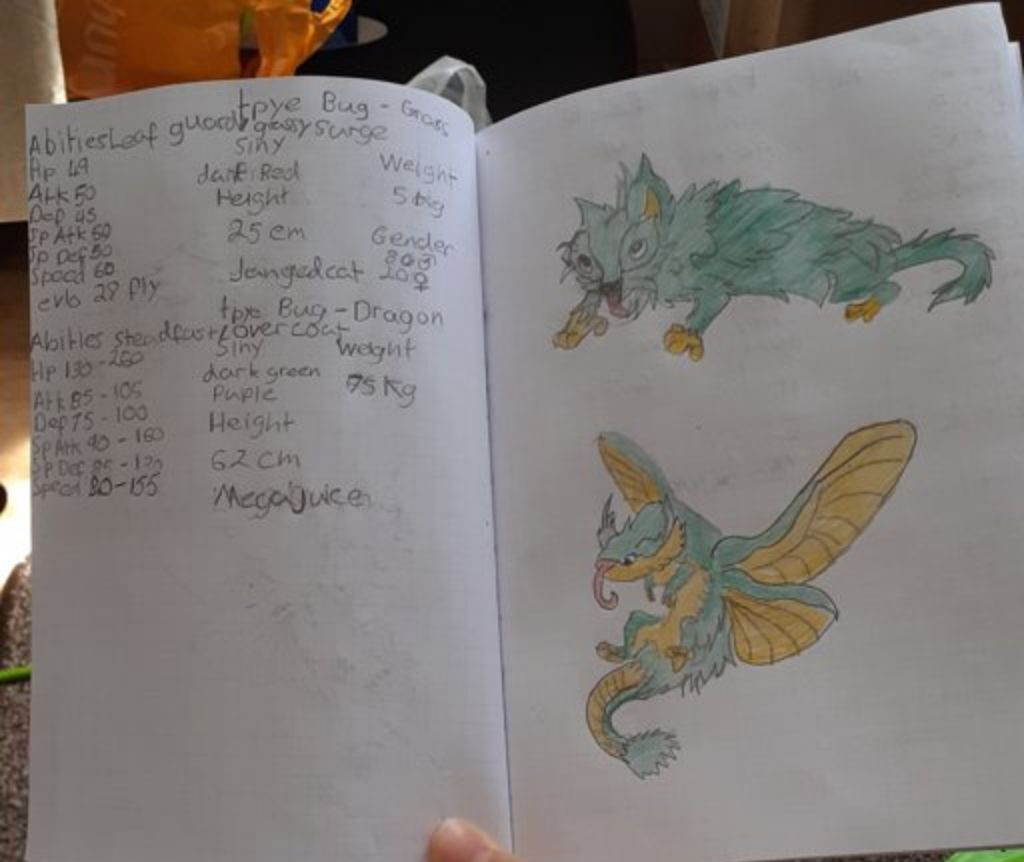 tpye Bug - Grass
Abities Leaf guard grassy surge
Siny
Hp 49
dark Red
Weight
Atk 50
Height
5
Dep 45
25 cm
Gender
Sp Atk 60
80♂
Sp Def 50
20♀
Speed 60
Jangedcat
evo 28 Fly
tpye Bug - Dragon
Abities steadfast overcoat
Siny
Weight
Hp 130 - 260
dark green
75 Kg
Atk 85 - 105
Puple
Dep 75 - 100
Height
Sp Atk 90 - 160
62 cm
Sp Def
Speed 80 - 155
Megajuice